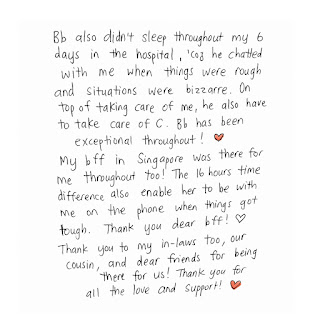 Bb also didn't sleep throughout my 6
days in the hospital, 'coz he chatted
with me when things were rough
and situations were bizzarre. On
top of taking care of me, he also have
to take care of C. Bb has been
exceptional throughout!
My bff in Singapore was there for
me throughout too! The 16 hours time
difference also enable her to be with
me on the phone when things got
tough. Thank you dear bff!
Thank you to my in-laws too, our
cousin, and dear friends for being
there for us! Thank you for
all the love and support!